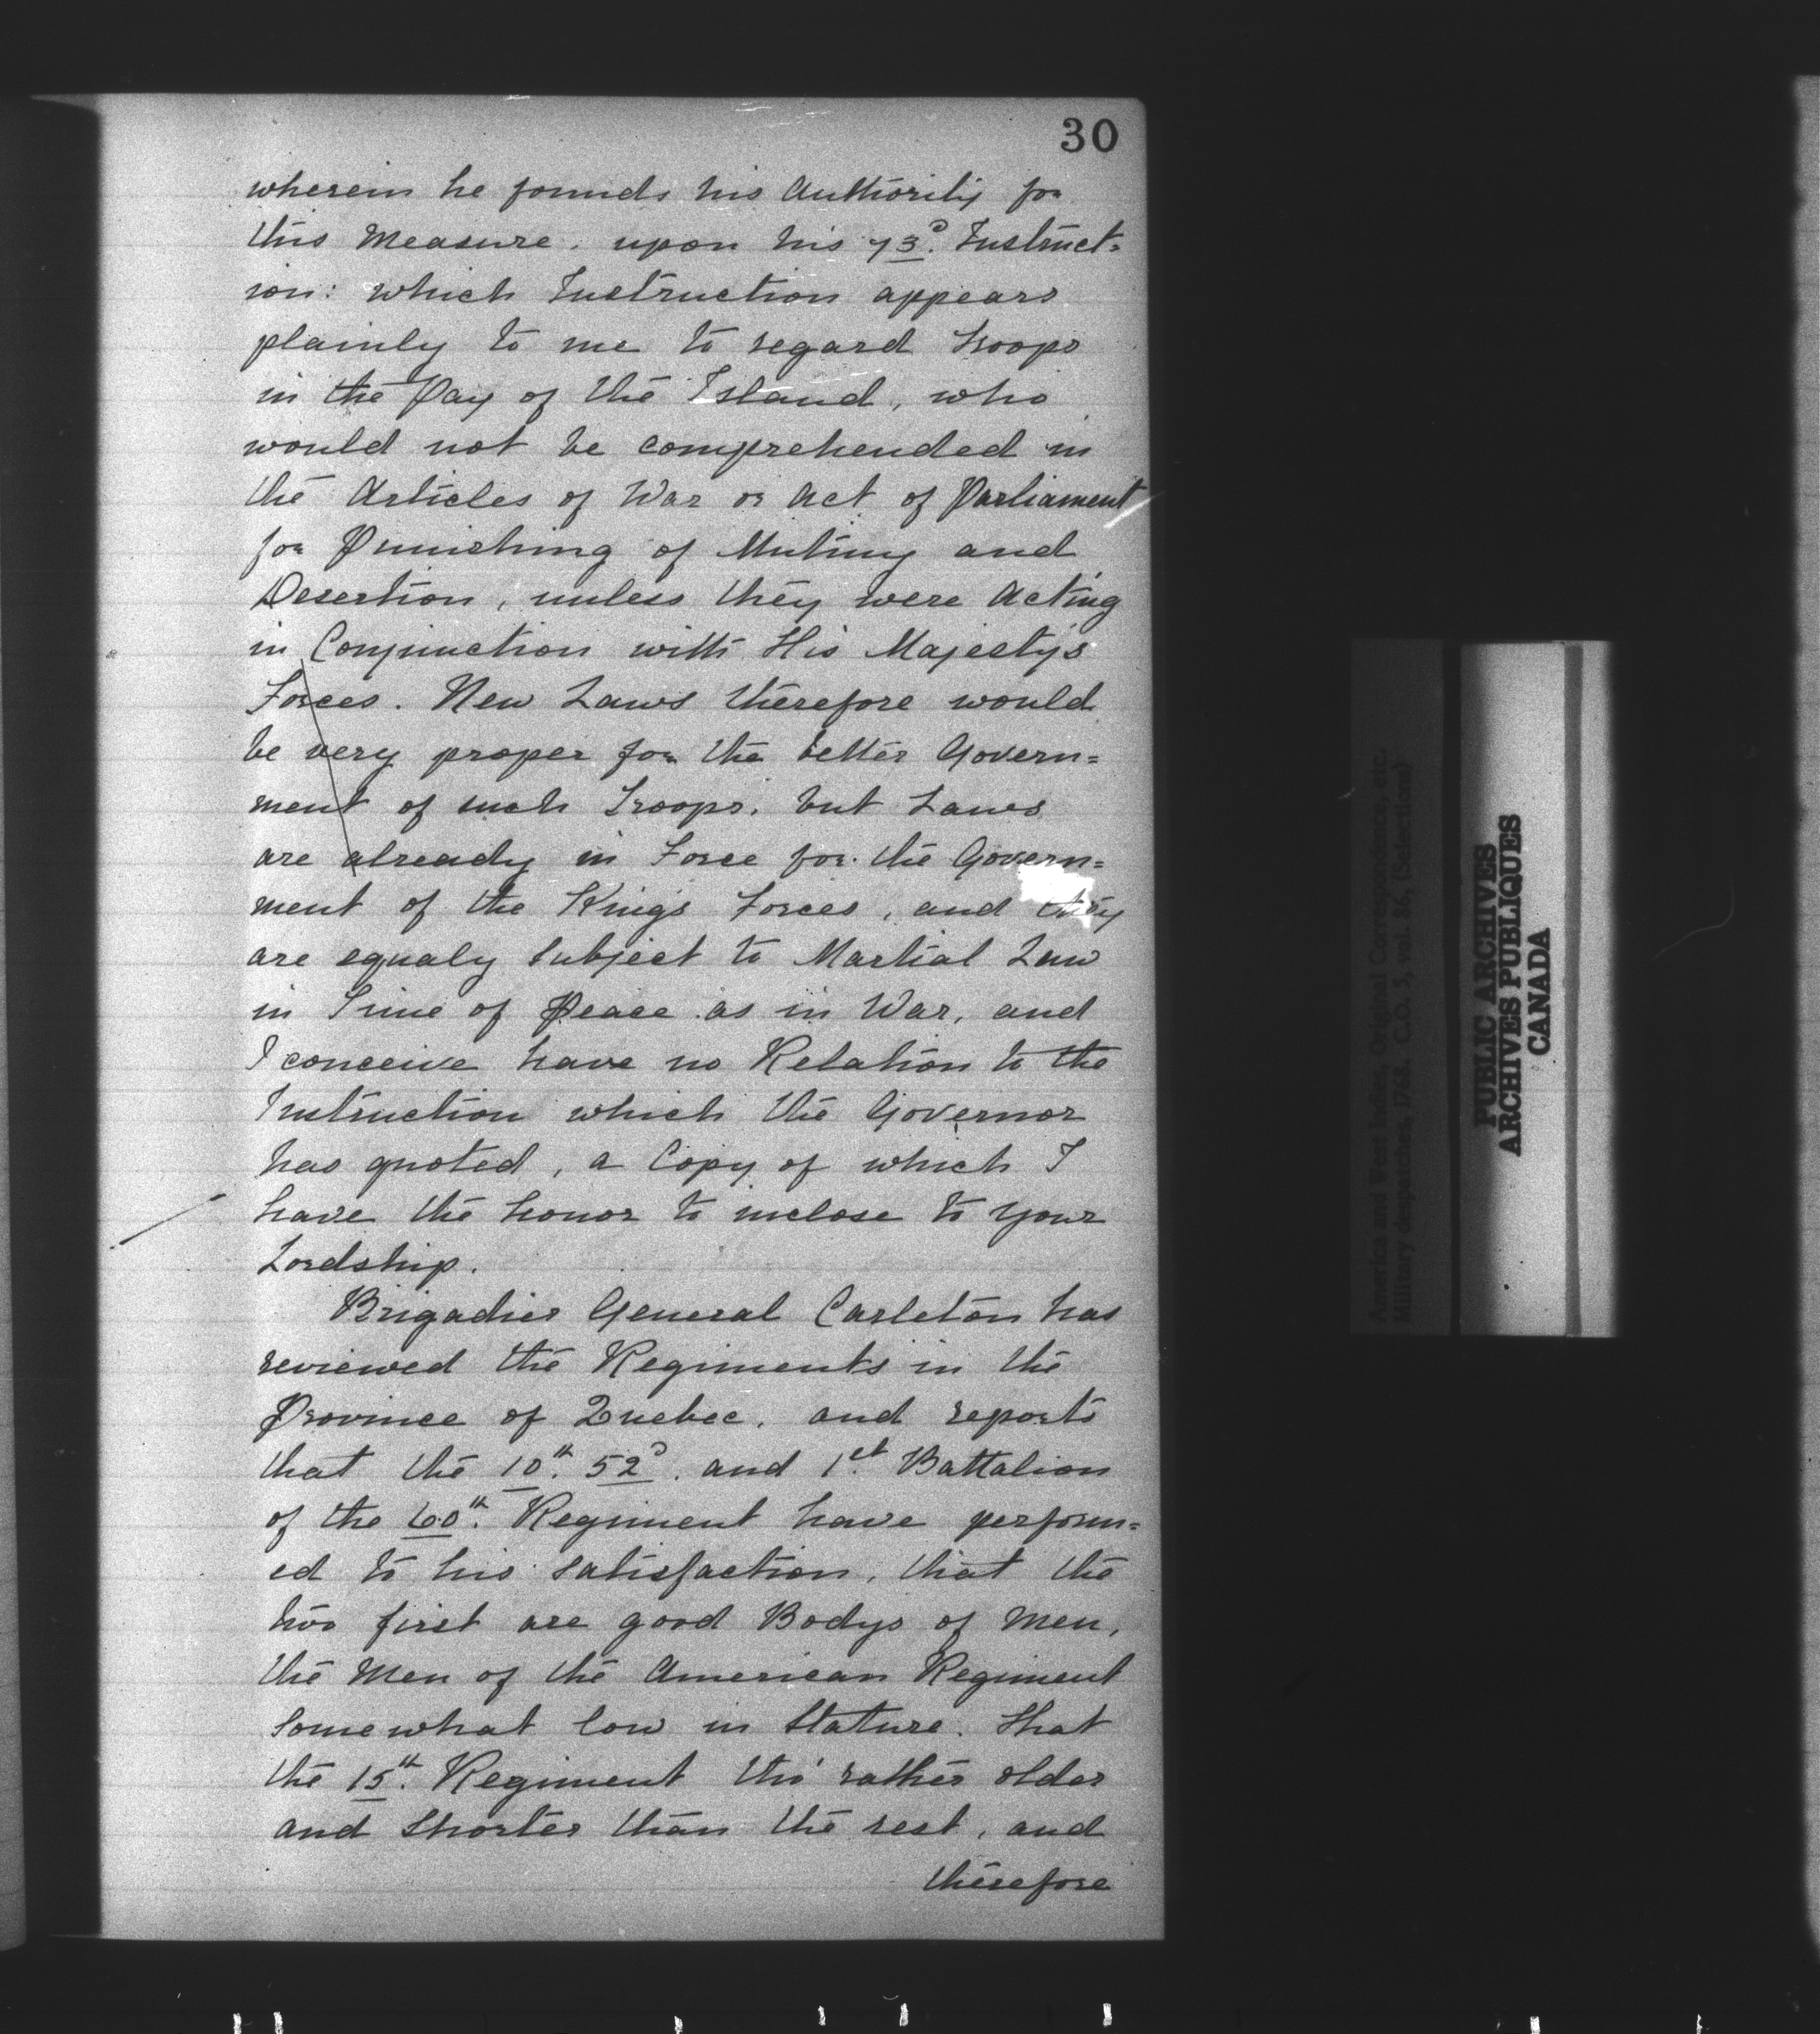 30
wherein he founds his Authority for
this Measure. upon his 73ᴰ. Instruct=
ion: which Instruction appears
plainly to me to regard Troops
in the Pay of the Island, who
would not be comprehended in
the Articles of War or Act of Parliament
for Punishing of Mutiny and
Desertion, unless they were Acting
in Conjunction with His Majesty's
Forces. New Laws therefore would
be very proper for the better Govern=
ment of such Troops. but Laws
are already in Force for the Govern=
ment of the King's Forces, and they
are equaly Subject to Martial Law
in Time of Peace as in War, and
I conceive have no Relation to the
Instruction which the Governor
has quoted, a Copy of which I
have the honor to inclose to Your
Lordship.
Brigadier General Carleton has
reviewed the Regiments in the
Province of Quebec. and reports
that the 10th. 52ᴰ. and 1st. Battalion
of the 60th. Regiment have perform=
ed to his Satisfaction, that the
two first are good Bodys of Men,
the Men of the American Regiment
Somewhat low in Stature. That
the 15th. Regiment tho' rather older
and Shorter than the rest, and
therefore
America and West Indies, Original Correspondence, etc.
Military despatches, 1768. C.O. 5, vol. 86, (Selections)
PUBLIC ARCHIVES
ARCHIVES PUBLIQUES
CANADA